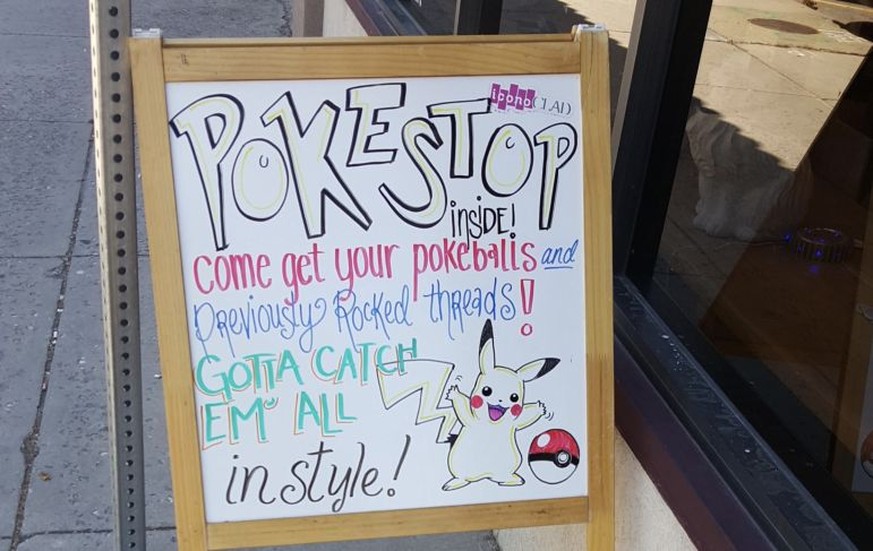 iconoCLAD
POKESTOP
inside!
come get your pokeballs and
previously Rocked threads!
GOTTA CATCH
EM' ALL
in style!